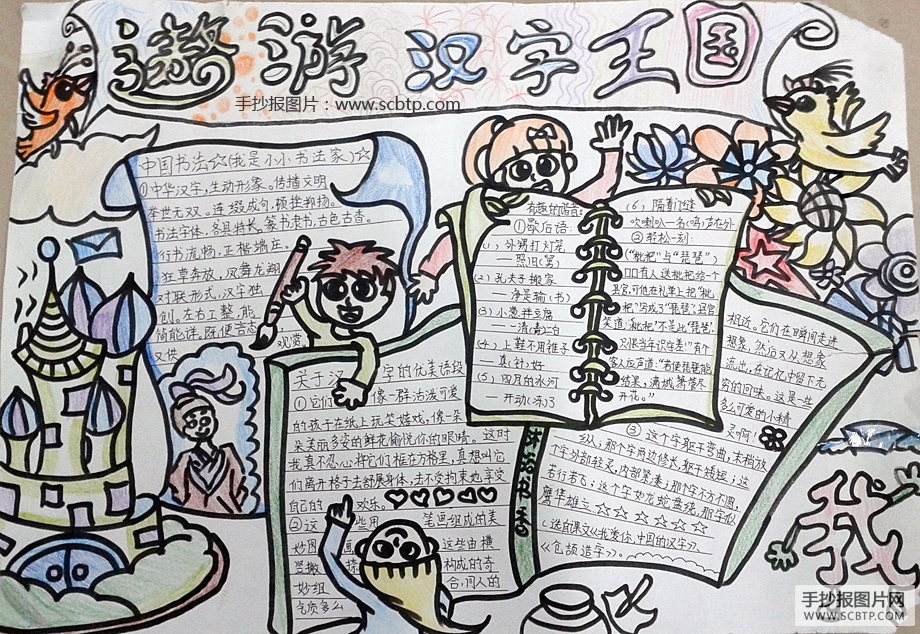 遨游汉字王国
手抄报图片：www.scbtp.com
中国书法☆(我是小小书法家)☆
①中华汉字,生动形象。传播文明
举世无双。连缀成句,顿挫抑扬。
书法字体,各具特长,篆书隶书,古色古香。
行书流畅,正楷端庄。
狂草奔放,凤舞龙翔
对联形式,汉字独
创。左右工整,能
简能详。既便言志
又供
观赏
有趣的谐音:
①歇后语:
(1)外甥打灯笼
—照旧(舅)
(2)孔夫子搬家
—净是输(书)
(3)小葱拌豆腐
—一清(青)二白
(4)上鞋不用锥子
—真(针)好
(5)四月的冰河
—开动(冻)了
(6)隔着门缝
吹喇叭—名(鸣)声在外
②轻松一刻:
("枇杷"与"琵琶")
口口有人送枇杷给一个
县官,可他在礼单上把"枇
杷"写成了"琵琶"。县官
笑道:"枇杷不是此"琵琶",
只恨当年识字差!"有个
客人应声道:"若使琵琶能
结果,满城箫管尽
开花。"
关于汉字的优美语段
①它们像一群活泼可爱
的孩子在纸上玩笑嬉戏,像一朵
朵美的多姿的鲜花愉悦你的眼睛。这时
我真不忍心将它们框在方格里,真想叫它
们离开格子去舒展身体,去不受拘束地享受
自己的欢乐。♡♡♡♡♡
②这些用笔画组成的美
妙图画这些由横
竖撇捺构成的奇
妙组合,同人的
气质多么
相近。它们在瞬间走进
想象,然后又从想象
流出,在记忆中留下无
穷的回味。这是一些
多么可爱的小精
灵啊!
③这个字躯干弯曲,末梢放
纵;那个字两边修长,躯干矮短;这
个字外部轻灵,内部紧凑;那个字不方不圆,
若行若飞;这个字如龙蛇盘绕,那字放
☆☆☆☆☆☆
(选自课文《我爱你,中国的汉字》)
《仓颉造字》。
我
手抄报图片网
WWW.SCBTP.COM